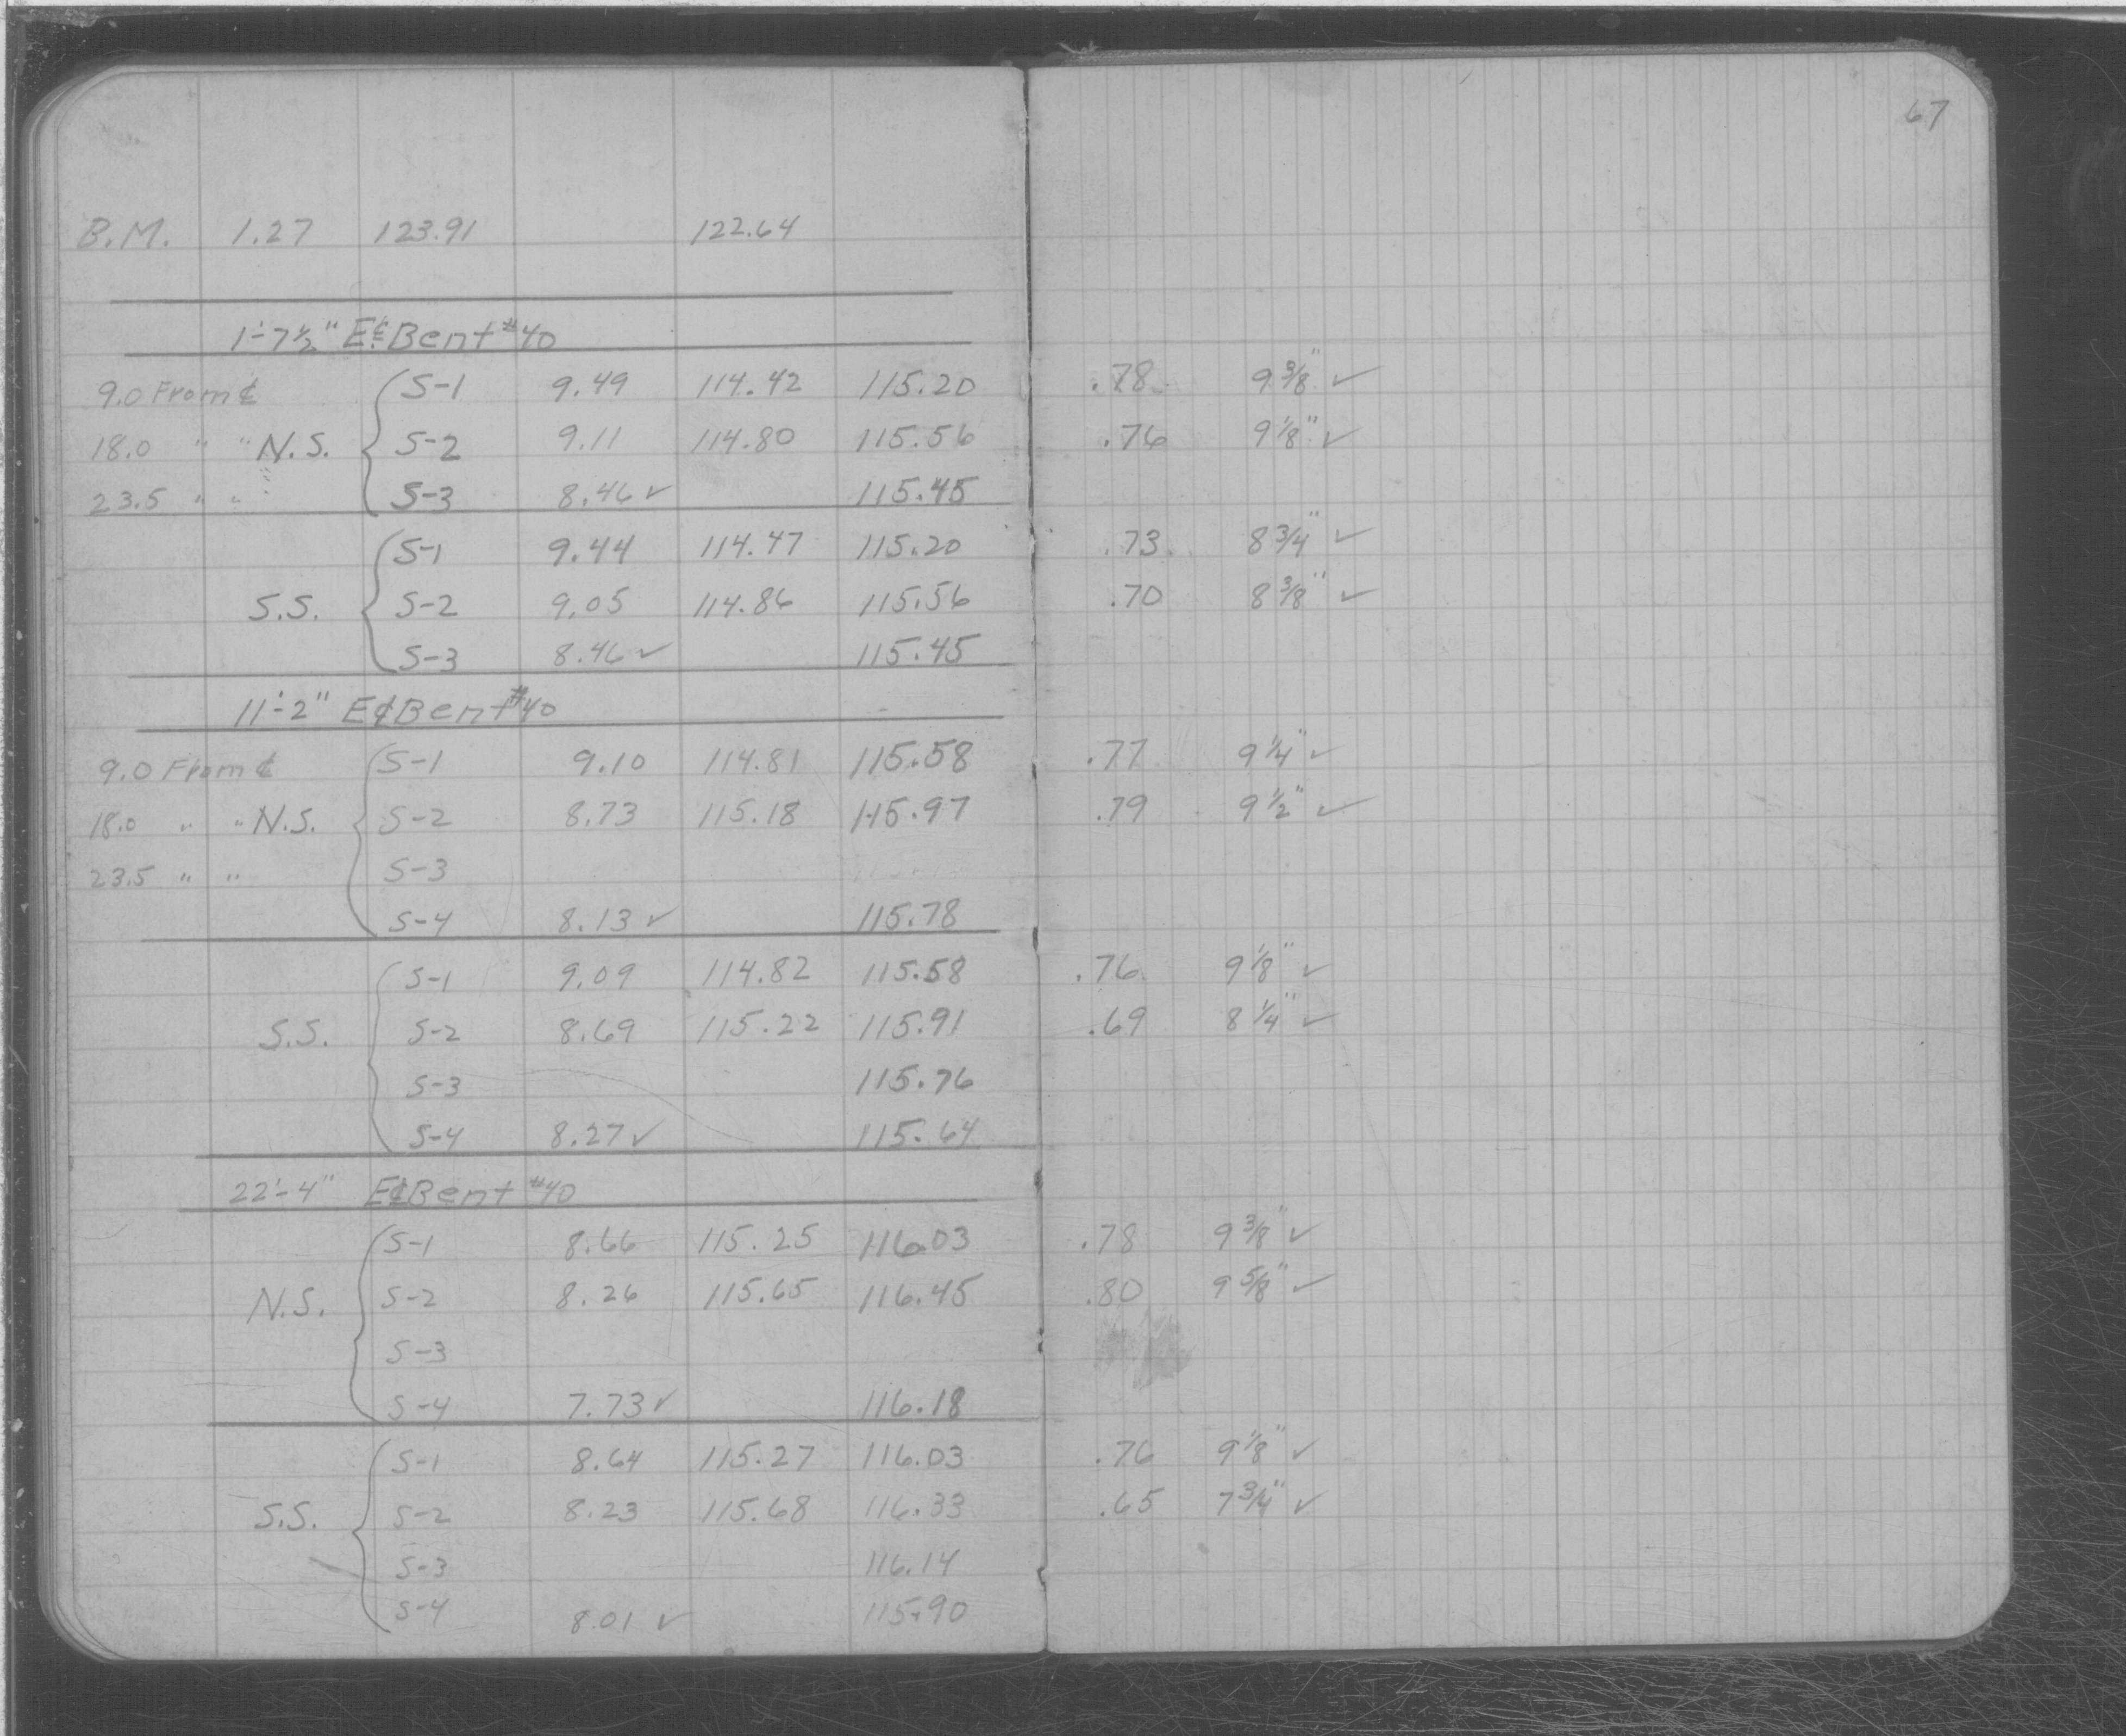 67
B.M. 1.27 123.91 122.64
1'-7½" E ¢ Bent #40
9.0 From ¢ S-1 9.49 114.42 115.20 .78 9 3/8" ✓
18.0 " " N.S. S-2 9.11 114.80 115.56 .76 9 1/8" ✓
23.5 " " S-3 8.46 ✓ 115.45
S-1 9.44 114.47 115.20 .73 8 3/4" ✓
S.S. S-2 9.05 114.86 115.56 .70 8 3/8" ✓
S-3 8.46 ✓ 115.45
11'-2" E ¢ Bent #40
9.0 From ¢ S-1 9.10 114.81 115.58 .77 9 1/4" ✓
18.0 " " N.S. S-2 8.73 115.18 115.97 .79 9 1/2" ✓
23.5 " " S-3
S-4 8.13 ✓ 115.78
S-1 9.09 114.82 115.58 .76 9 1/8" ✓
S.S. S-2 8.69 115.22 115.91 .69 8 1/4" ✓
S-3 115.76
S-4 8.27 ✓ 115.64
22'-4" E ¢ Bent #40
S-1 8.66 115.25 116.03 .78 9 3/8" ✓
N.S. S-2 8.26 115.65 116.45 .80 9 5/8" ✓
S-3
S-4 7.73 ✓ 116.18
S-1 8.64 115.27 116.03 .76 9 1/8" ✓
S.S. S-2 8.23 115.68 116.33 .65 7 3/4" ✓
S-3 116.14
S-4 8.01 ✓ 115.90